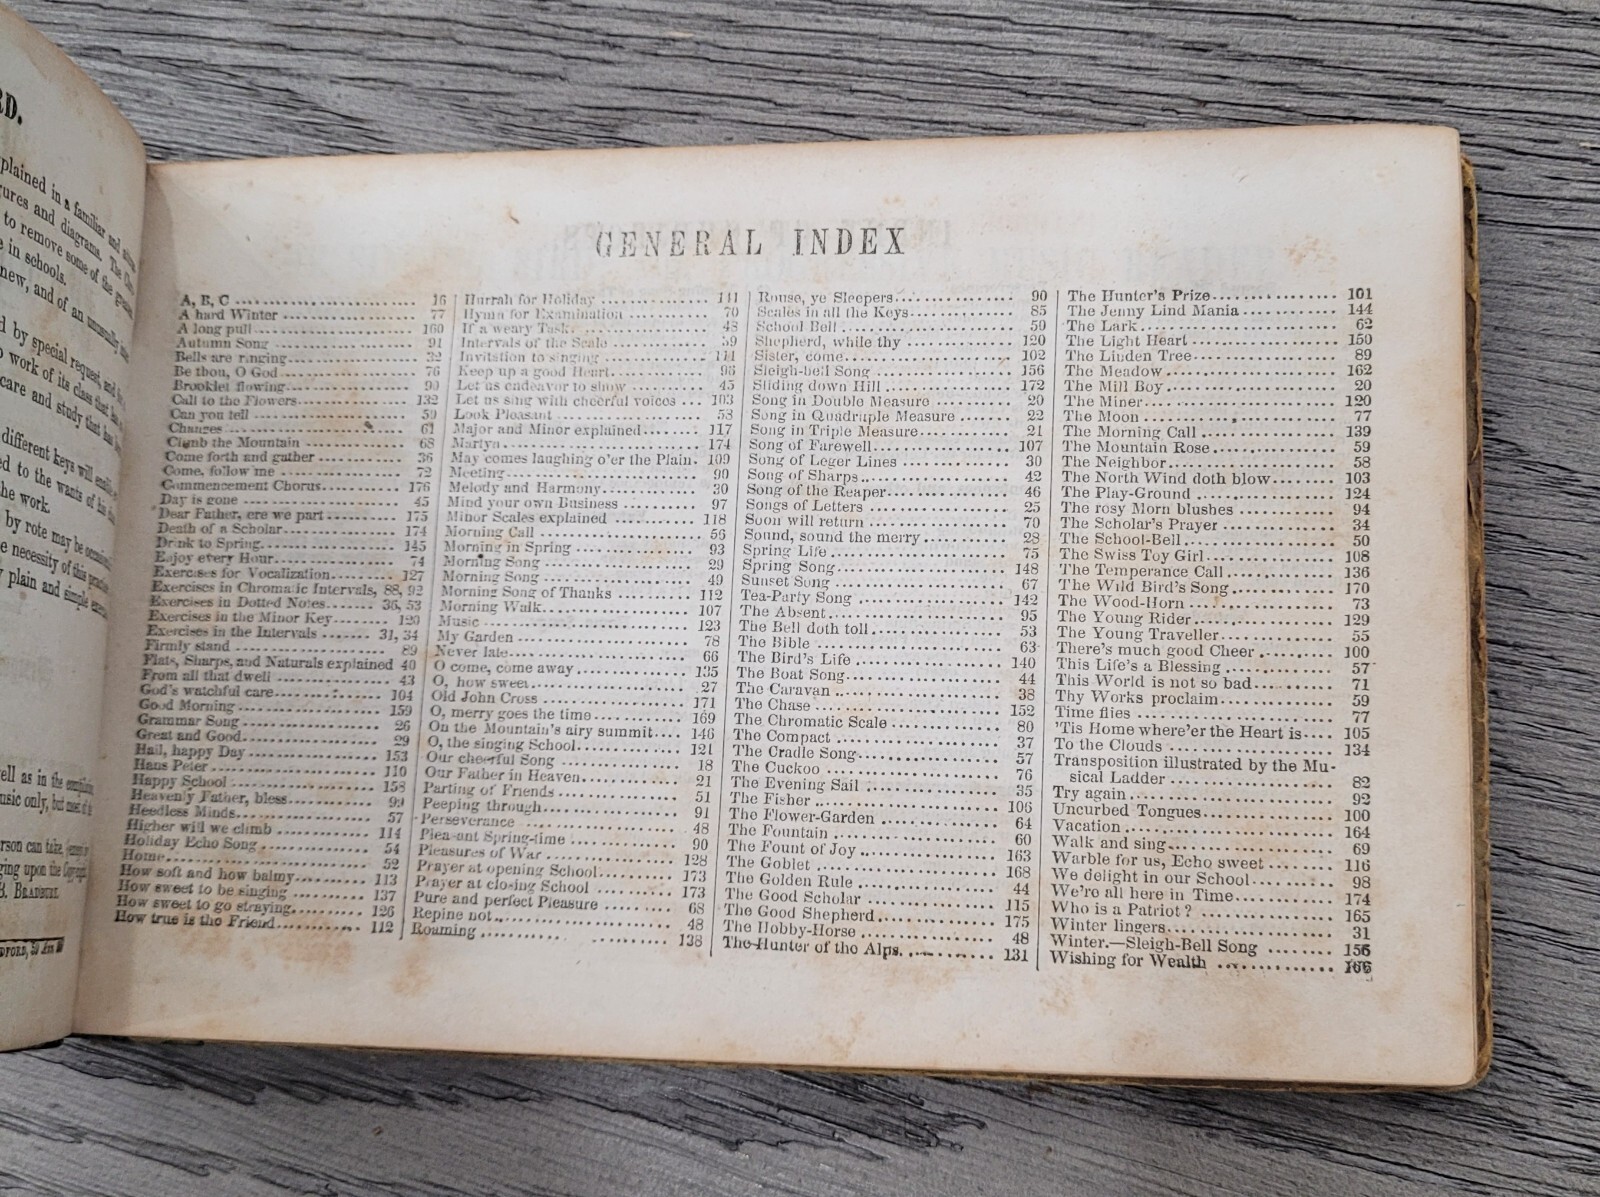 RD.
plained in a familiar and
gures and diagrams. The
to remove some of the
e in schools.
new, and of an
d by special request and
work of its class that has
care and study that has
different keys will
ed to the wants of his
the work.
by rote may be
e necessity of this
plain and simple
ell as in the
usic only, but most of
rson can take,
ging upon the
B. BRADBURY.
GENERAL INDEX
A, B, C 16
A hard Winter 77
A long pull 160
Autumn Song 91
Bells are ringing 32
Be thou, O God 76
Brooklet flowing 90
Call to the Flowers 132
Can you tell 59
Changes 61
Climb the Mountain 68
Come forth and gather 36
Come, follow me 72
Commencement Chorus 176
Day is gone 45
Dear Father, ere we part 175
Death of a Scholar 174
Drink to Spring 145
Enjoy every Hour 74
Exercises for Vocalization 127
Exercises in Chromatic Intervals, 88, 92
Exercises in Dotted Notes 36, 53
Exercises in the Minor Key 120
Exercises in the Intervals 31, 34
Firmly stand 89
Flats, Sharps, and Naturals explained 40
From all that dwell 43
God's watchful care 104
Good Morning 159
Grammar Song 26
Great and Good 29
Hail, happy Day 153
Hans Peter 110
Happy School 158
Heavenly Father, bless 99
Heedless Minds 57
Higher will we climb 114
Holiday Echo Song 54
Home 52
How soft and how balmy 113
How sweet to be singing 137
How sweet to go straying 126
How true is the Friend 112
Hurrah for Holiday 111
Hymn for Examination 70
If a weary Task 48
Intervals of the Scale 39
Invitation to singing 111
Keep up a good Heart
Let us endeavor to show 45
Let us sing with cheerful voices 103
Look Pleasant 58
Major and Minor explained 117
Martyn 174
May comes laughing o'er the Plain 109
Meeting 90
Melody and Harmony 30
Mind your own Business 97
Minor Scales explained 118
Morning Call 56
Morning in Spring 93
Morning Song 29
Morning Song 49
Morning Song of Thanks 112
Morning Walk 107
Music 123
My Garden 78
Never late 66
O come, come away 135
O, how sweet 27
Old John Cross 171
O, merry goes the time 169
On the Mountain's airy summit 146
O, the singing School 121
Our cheerful Song 18
Our Father in Heaven 21
Parting of Friends 51
Peeping through 91
Perseverance 48
Pleasant Spring-time 90
Pleasures of War 128
Prayer at opening School 173
Prayer at closing School 173
Pure and perfect Pleasure 68
Repine not 48
Roaming 138
Rouse, ye Sleepers 90
Scales in all the Keys 85
School Bell 50
Shepherd, while thy 120
Sister, come 102
Sleigh-bell Song 156
Sliding down Hill 172
Song in Double Measure 20
Song in Quadruple Measure 22
Song in Triple Measure 21
Song of Farewell 107
Song of Leger Lines 30
Song of Sharps 42
Song of the Reaper 46
Songs of Letters 25
Soon will return 70
Sound, sound the merry 28
Spring Life 75
Spring Song 148
Sunset Song 67
Tea-Party Song 142
The Absent 95
The Bell doth toll 53
The Bible 63
The Bird's Life 140
The Boat Song 44
The Caravan 38
The Chase 152
The Chromatic Scale 80
The Compact 37
The Cradle Song 57
The Cuckoo 76
The Evening Sail 35
The Fisher 106
The Flower-Garden 64
The Fountain 60
The Fount of Joy 163
The Goblet 168
The Golden Rule 44
The Good Scholar 115
The Good Shepherd 175
The Hobby-Horse 48
The Hunter of the Alps 131
The Hunter's Prize 101
The Jenny Lind Mania 144
The Lark 62
The Light Heart 150
The Linden Tree 89
The Meadow 162
The Mill Boy 20
The Miner 120
The Moon 77
The Morning Call 139
The Mountain Rose 59
The Neighbor 58
The North Wind doth blow 103
The Play-Ground 124
The rosy Morn blushes 94
The Scholar's Prayer 34
The School-Bell 50
The Swiss Toy Girl 108
The Temperance Call 136
The Wild Bird's Song 170
The Wood-Horn 73
The Young Rider 129
The Young Traveller 55
There's much good Cheer 100
This Life's a Blessing 57
This World is not so bad 71
Thy Works proclaim 59
Time flies 77
'Tis Home where'er the Heart is 105
To the Clouds 134
Transposition illustrated by the Mu-
sical Ladder 82
Try again 92
Uncurbed Tongues 100
Vacation 164
Walk and sing 69
Warble for us, Echo sweet 116
We delight in our School 98
We're all here in Time 174
Who is a Patriot? 165
Winter lingers 31
Winter.—Sleigh-Bell Song 156
Wishing for Wealth